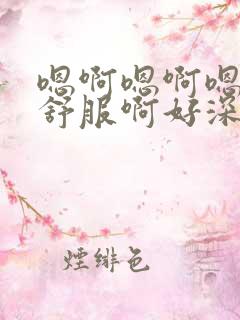 嗯啊嗯啊嗯
舒服啊好深
煙绯色